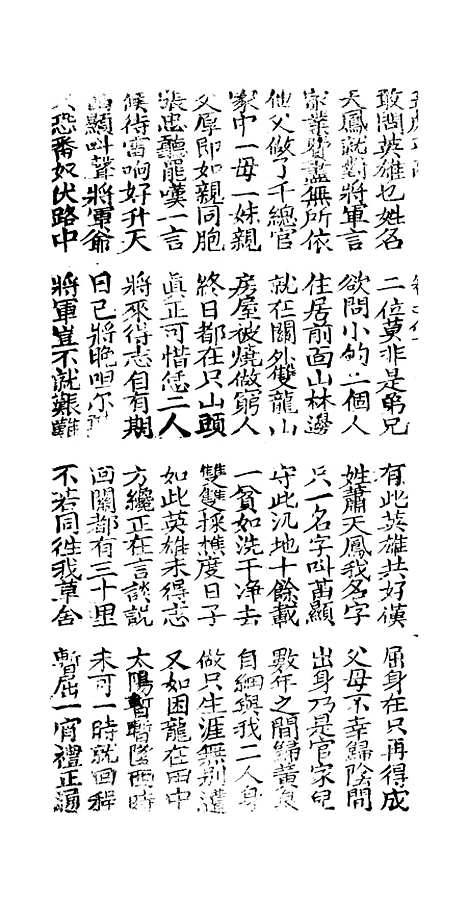 敢問英雄乜姓名 二位莫非是弟兄 有此英雄共好漢 屈身在只再得成
天鳳就對將軍言 欲問小的二個人 姓蕭天鳳我名字 父母不幸歸陰間
家業費盡無所依 住居前面山林邊 只一名字叫苗顯 出身乃是官家兒
他父做了千總官 就在關外雙龍山 守此汛地十餘載 數年之間歸黃泉
家中一母一妹親 房屋被燒做窮人 一貧如洗干净去 自細與我二人身
父厚即如親同胞 終日都在只山頭 雙雙採樵度日子 做只生涯無別遭
張忠聽罷嘆一言 真正可惜恁二人 如此英雄未得志 又如困龍在田中
候待雷响好升天 將來得志自有期 方纔正在言談説 太陽暫暫墜西時
苗顯叫聲將軍爺 日已將晚咀尔 回關都有三十里 未可一時就回程
恐番奴伏路中 將軍豈不就艱難 不若同往我草舍 暫屈一宵禮正通